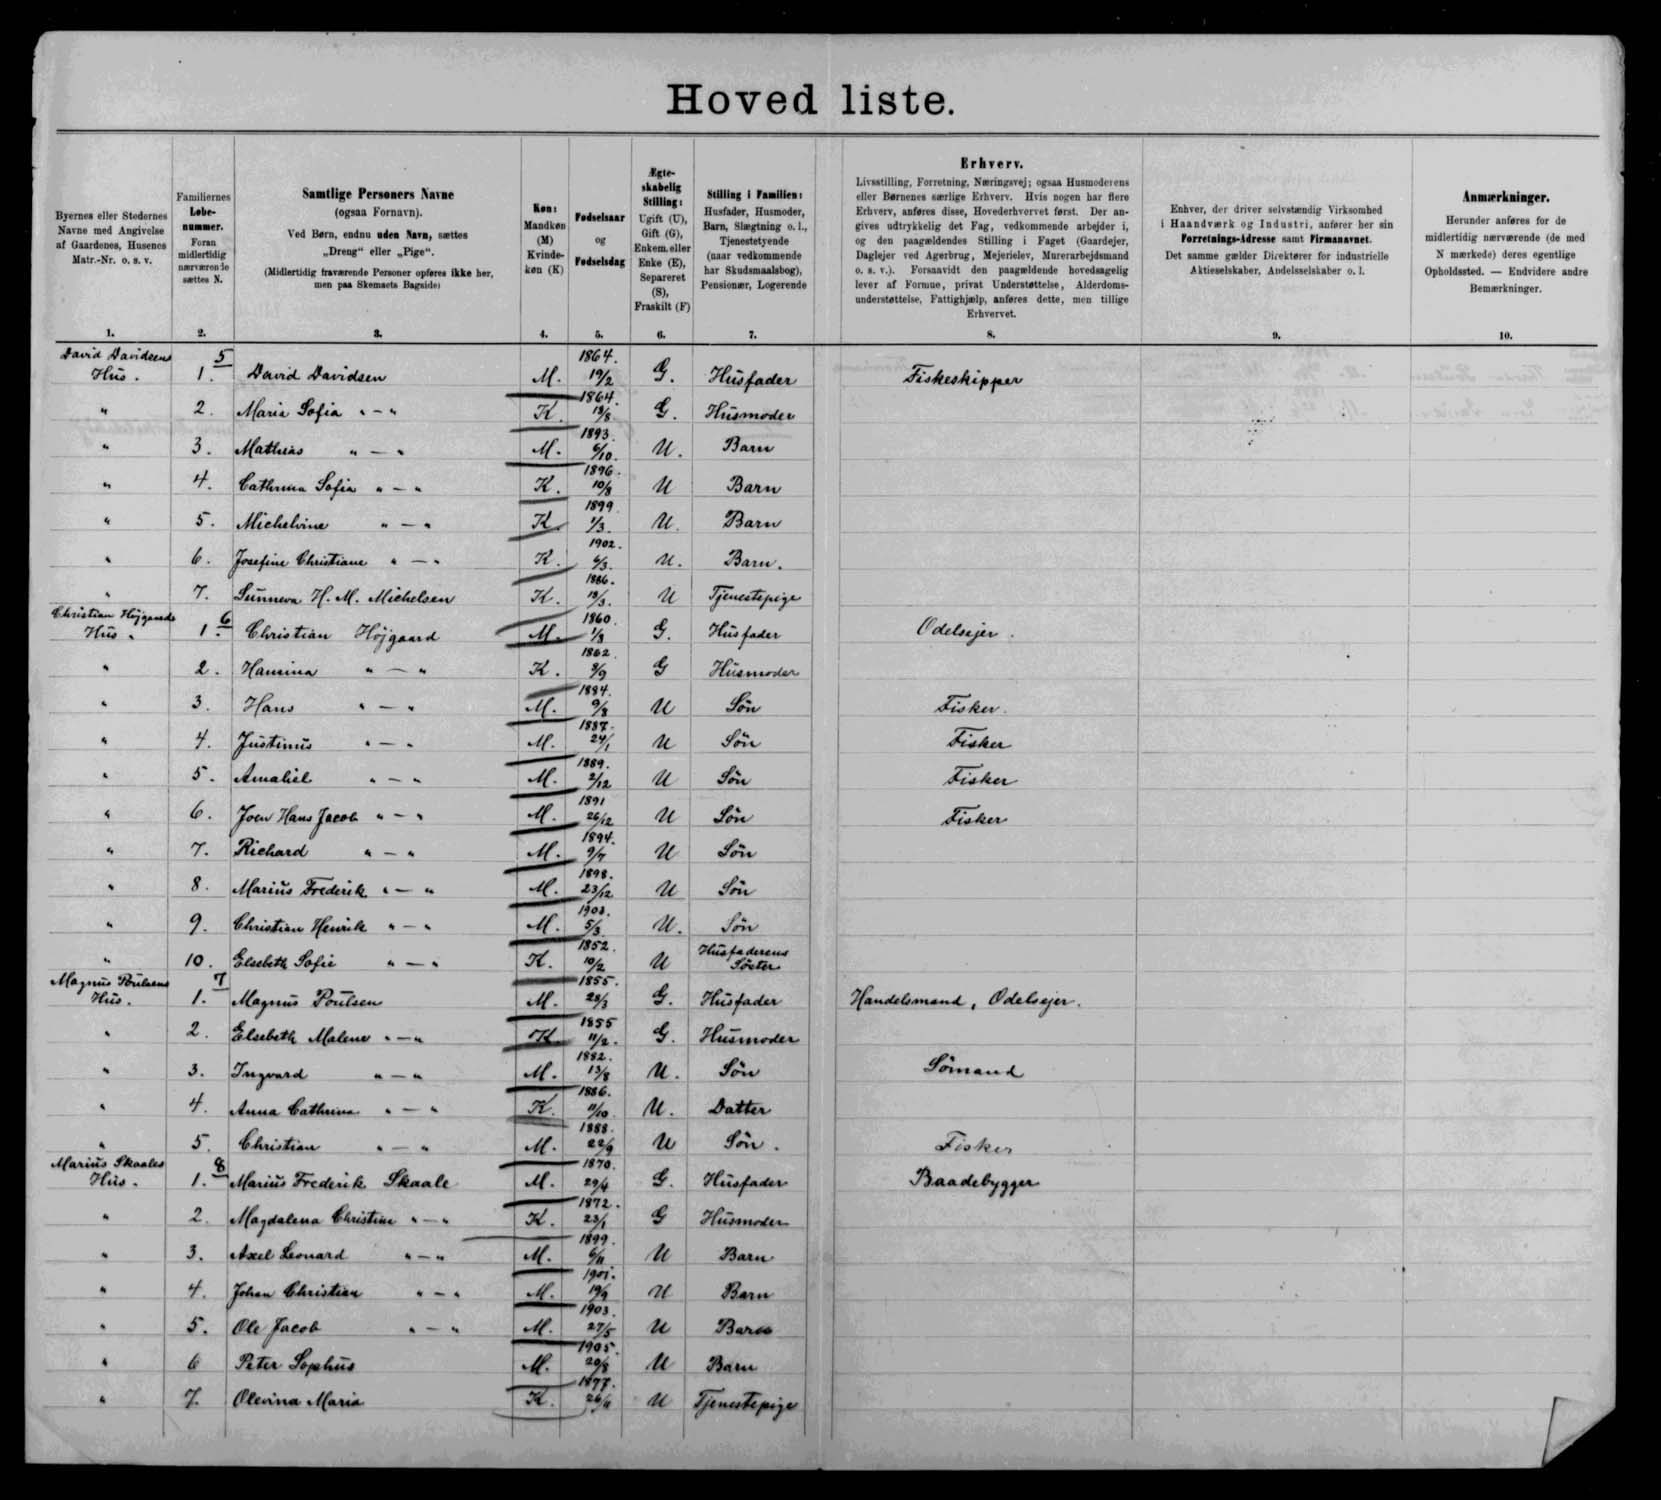 Hoved liste.
Byernes eller Stedernes Navne med Angivelse af Gaardenes, Husenes Matr.-Nr. o. s. v.
Familiernes Løbe-nummer. Foran midlertidig nærværende sættes N.
Samtlige Personers Navne
(ogsaa Fornavn).
Ved Børn, endnu uden Navn, sættes „Dreng" eller „Pige".
(Midlertidig fraværende Personer opføres ikke her, men paa Skemaets Bagside)
Køn: Mandkøn (M) Kvinde-køn (K)
Fødselsaar og Fødselsdag
Ægte-skabelig Stilling: Ugift (U), Gift (G), Enkem. eller Enke (E), Separeret (S), Fraskilt (F)
Stilling i Familien: Husfader, Husmoder, Barn, Slægtning o. l., Tjenestetyende (naar vedkommende har Skudsmaalsbog), Pensionær, Logerende
Erhverv.
Livsstilling, Forretning, Næringsvej; ogsaa Husmoderens eller Børnenes særlige Erhverv. Hvis nogen har flere Erhverv, anføres disse, Hovederhvervet først. Der angives udtrykkelig det Fag, vedkommende arbejder i, og den paagældendes Stilling i Faget (Gaardejer, Daglejer ved Agerbrug, Mejerielev, Murerarbejdsmand o. s. v.). Forsaavidt den paagældende hovedsagelig lever af Formue, privat Understøttelse, Alderdoms-understøttelse, Fattighjælp, anføres dette, men tillige Erhvervet.
Enhver, der driver selvstændig Virksomhed i Haandværk og Industri, anfører her sin Forretnings-Adresse samt Firmanavnet. Det samme gælder Direktører for industrielle Aktieselskaber, Andelsselskaber o. l.
Anmærkninger.
Herunder anføres for de midlertidig nærværende (de med N mærkede) deres egentlige Opholdssted. — Endvidere andre Bemærkninger.
1. 2. 3. 4. 5. 6. 7. 8. 9. 10.
David Davidsens Hus. 5 1. David Davidsen M. 1864. 19/2 G. Husfader Fiskeskipper
" 2. Maria Sofia " — " K. 1864. 13/8 G. Husmoder
" 3. Mathias " — " M. 1893. 6/10. U. Barn
" 4. Cathrina Sofia " — " K. 1896. 10/8 U Barn
" 5. Michelvine " — " K. 1899 1/3. U. Barn
" 6. Josefine Christiane " — " K. 1902. 6/3. U. Barn.
" 7. Sunneva H. M. Michelsen K. 1886. 13/3. U Tjenestepige
Christian Højgaards Hus. 6 1. Christian Højgaard M. 1860. 1/8 G. Husfader Odelsejer.
" 2. Hansina " — " K. 1862. 8/9 G Husmoder
" 3. Hans " — " M. 1884. 9/8 U Søn Fisker.
" 4. Justinus " — " M. 1887. 24/1 U Søn Fisker
" 5. Amaliel " — " M. 1889. 2/12 U Søn Fisker
" 6. Joen Hans Jacob " — " M. 1891 26/12 U Søn Fisker
" 7. Richard " — " M. 1894. 9/7 U Søn
" 8. Marius Frederik " — " M. 1898. 23/12 U Søn
" 9. Christian Henrik " — " M. 1903. 5/3 U. Søn
" 10. Elsebeth Sofie " — " K. 1852. 10/2 U Husfaderens Søster
Magnus Poulsens Hus. 7 1. Magnus Poulsen M. 1855. 28/3 G. Husfader Handelsmand, Odelsejer.
" 2. Elsebeth Malene " — " K. 1855 11/2. G. Husmoder
" 3. Ingvard " — " M. 1882. 13/8 U. Søn Sømand
" 4. Anna Cathrina " — " K. 1886. 11/10. U. Datter
" 5. Christian " — " M. 1888. 22/9 U Søn. Fisker
Marius Skaales Hus. 8 1. Marius Frederik Skaale M. 1870. 29/4 G. Husfader Baadebygger
" 2. Magdalena Christine " — " K. 1872. 23/1 G Husmoder
" 3. Axel Leonard " — " M. 1899. 6/11 U Barn
" 4. Johan Christian " — " M. 1901. 19/9 U Barn
" 5. Ole Jacob " — " M. 1903. 27/5 U Barn
" 6 Peter Sophus M. 1905. 20/8 U Barn
" 7. Olevina Maria K. 1877. 26/11 U Tjenestepige